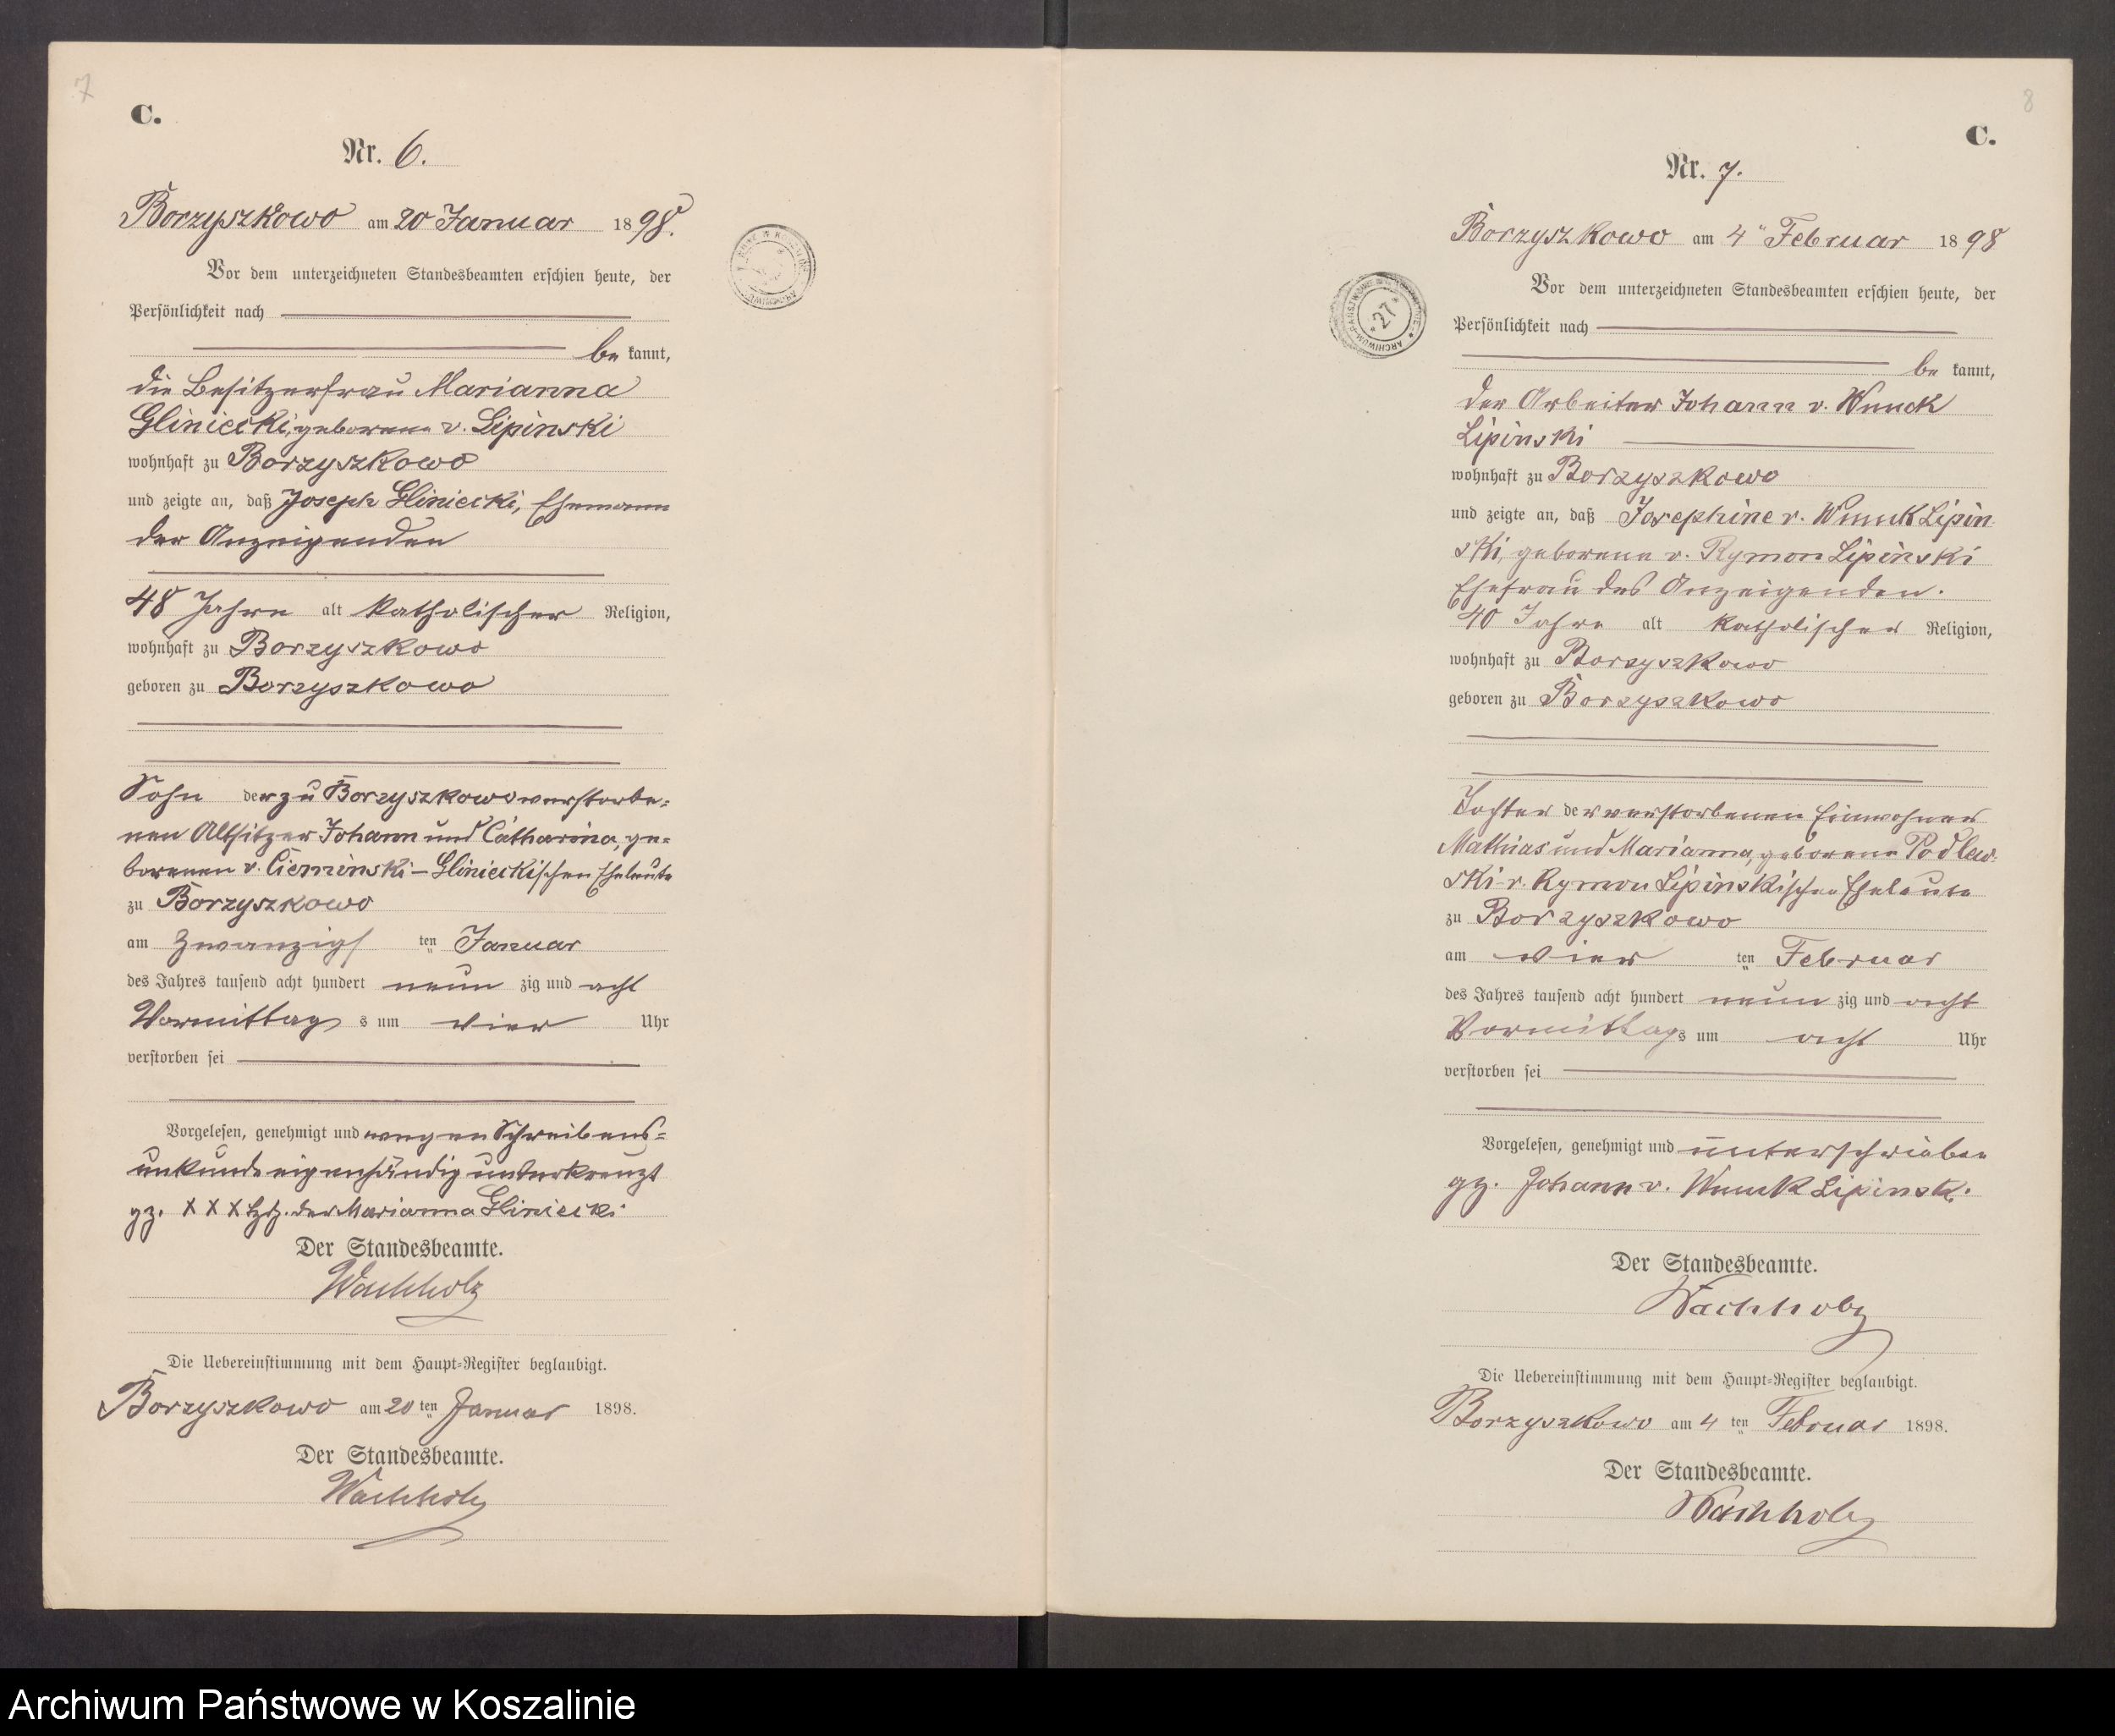 7
C.
Nr. 6.
Borzyszkowo am 20 Januar 1898.
Vor dem unterzeichneten Standesbeamten erschien heute, der
Persönlichkeit nach
be kannt,
die Besitzerfrau Marianna
Gliniecki, geborene v. Lipinski
wohnhaft zu Borzyszkowo
und zeigte an, daß Joseph Gliniecki, Ehemann
der Anzeigenden
48 Jahre alt katholischer Religion,
wohnhaft zu Borzyszkowo
geboren zu Borzyszkowo
Sohn der zu Borzyszkowo verstorbe=
nen Altsitzer Johann und Catharina, ge=
borenen v. Cieminski – Glinieckischen Eheleute
zu Borzyszkowo
am zwanzigs ten Januar
des Jahres tausend acht hundert neun zig und acht
Vormittag s um vier Uhr
verstorben sei
Vorgelesen, genehmigt und wegen Schreibens=
unkunde eigenhändig unterkreuzt
gz. XXX Hdz. der Marianna Gliniecki
Der Standesbeamte.
Wachholz
Die Uebereinstimmung mit dem Haupt=Register beglaubigt.
Borzyszkowo am 20 ten Januar 1898.
Der Standesbeamte.
Wachholz
8
C.
Nr. 7.
Borzyszkowo am 4" Februar 1898
27
Vor dem unterzeichneten Standesbeamten erschien heute, der
Persönlichkeit nach
be kannt,
der Arbeiter Johann v. Wnuck
Lipinski
wohnhaft zu Borzyszkowo
und zeigte an, daß Josephine v. Wnuk Lipin
ski, geborene v. Rymon Lipinski
Ehefrau des Anzeigenden.
40 Jahre alt katholischer Religion,
wohnhaft zu Borzyszkowo
geboren zu Borzyszkowo
Tochter der verstorbenen Einwohner
Mathias und Marianna, geborene Podlew
ski - v. Rymon Lipinskischen Eheleute
zu Borzyszkowo
am vier ten Februar
des Jahres tausend acht hundert neun zig und acht
Vormittag s um acht Uhr
verstorben sei
Vorgelesen, genehmigt und unterschrieben
gz. Johann v. Wnuk Lipinski.
Der Standesbeamte.
Wachholz
Die Uebereinstimmung mit dem Haupt=Register beglaubigt.
Borzyszkowo am 4 ten Februar 1898.
Der Standesbeamte.
Wachholz
Archiwum Państwowe w Koszalinie